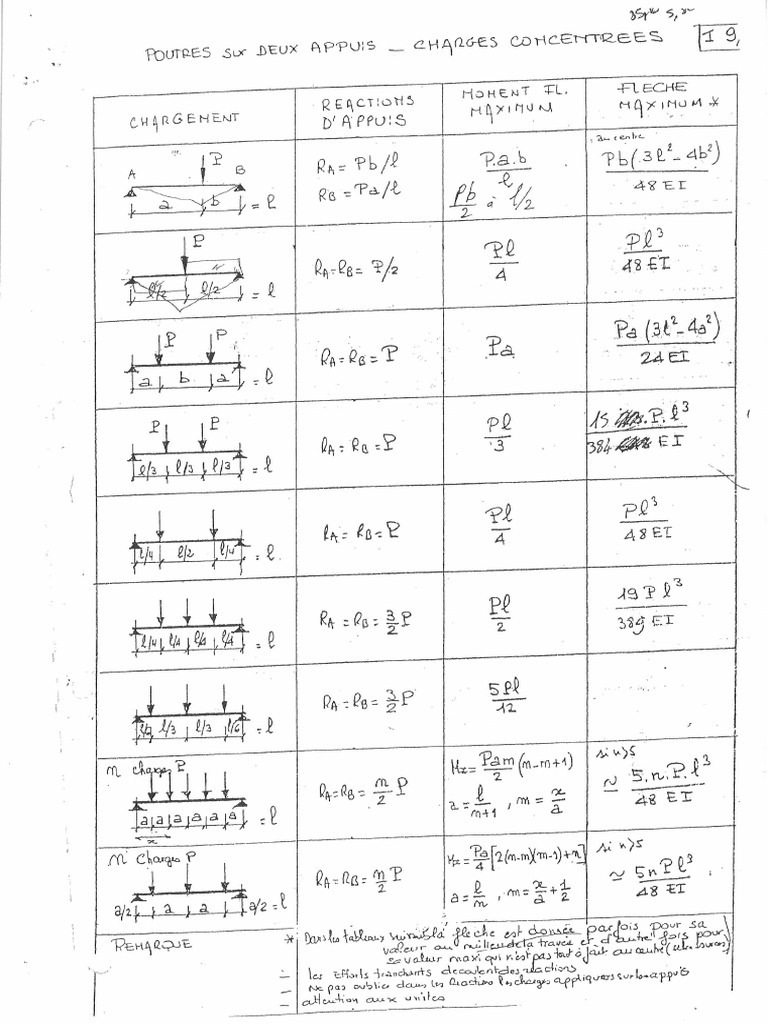 5,
POUTRES SUR DEUX APPUIS — CHARGES CONCENTREES
I 9,
CHARGEMENT
REACTIONS D'APPUIS
MOMENT FL. MAXIMUM
FLECHE MAXIMUM *
A P B
a b = l
RA = Pb/l
RB = Pa/l
P.a.b / l
Pb/2 à l/2
au centre
Pb(3l²-4b²) / 48 EI
P
l/2 l/2 = l
RA = RB = P/2
Pl / 4
Pl³ / 48 EI
P P
a b a = l
RA = RB = P
Pa
Pa (3l²-4a²) / 24 EI
P P
l/3 l/3 l/3 = l
RA = RB = P
Pl / 3
15 .P.l³ / 384 EI
l/4 l/2 l/4 = l
RA = RB = P
Pl / 4
Pl³ / 48 EI
l/4 l/4 l/4 l/4 = l
RA = RB = 3/2 P
Pl / 2
19 P l³ / 389 EI
l/3 l/3 l/6 = l
RA = RB = 3/2 P
5Pl / 12
n charges P
a a a a a a = l
x
RA = RB = n/2 P
Mx = Pam/2 (n-m+1)
a = l/n+1 , m = x/a
si n>5
≃ 5.n.P.l³ / 48 EI
n charges P
a/2 a a a/2 = l
RA = RB = n/2 P
Mx = Pa/4 [2(n-m)(m-1)+n]
a = l/n , m = x/a + 1/2
si n>5
≃ 5nPl³ / 48 EI
REMARQUE
* Dans les tableaux suivants la fleche est donnée parfois pour sa
valeur au milieu de la travée et d'autre fois pour
sa valeur maxi qui n'est pas tout à fait au centre
— les Efforts tranchants decoulent des reactions
— Ne pas oublier dans les Reactions les charges appliquees sur les appuis
— attention aux unites